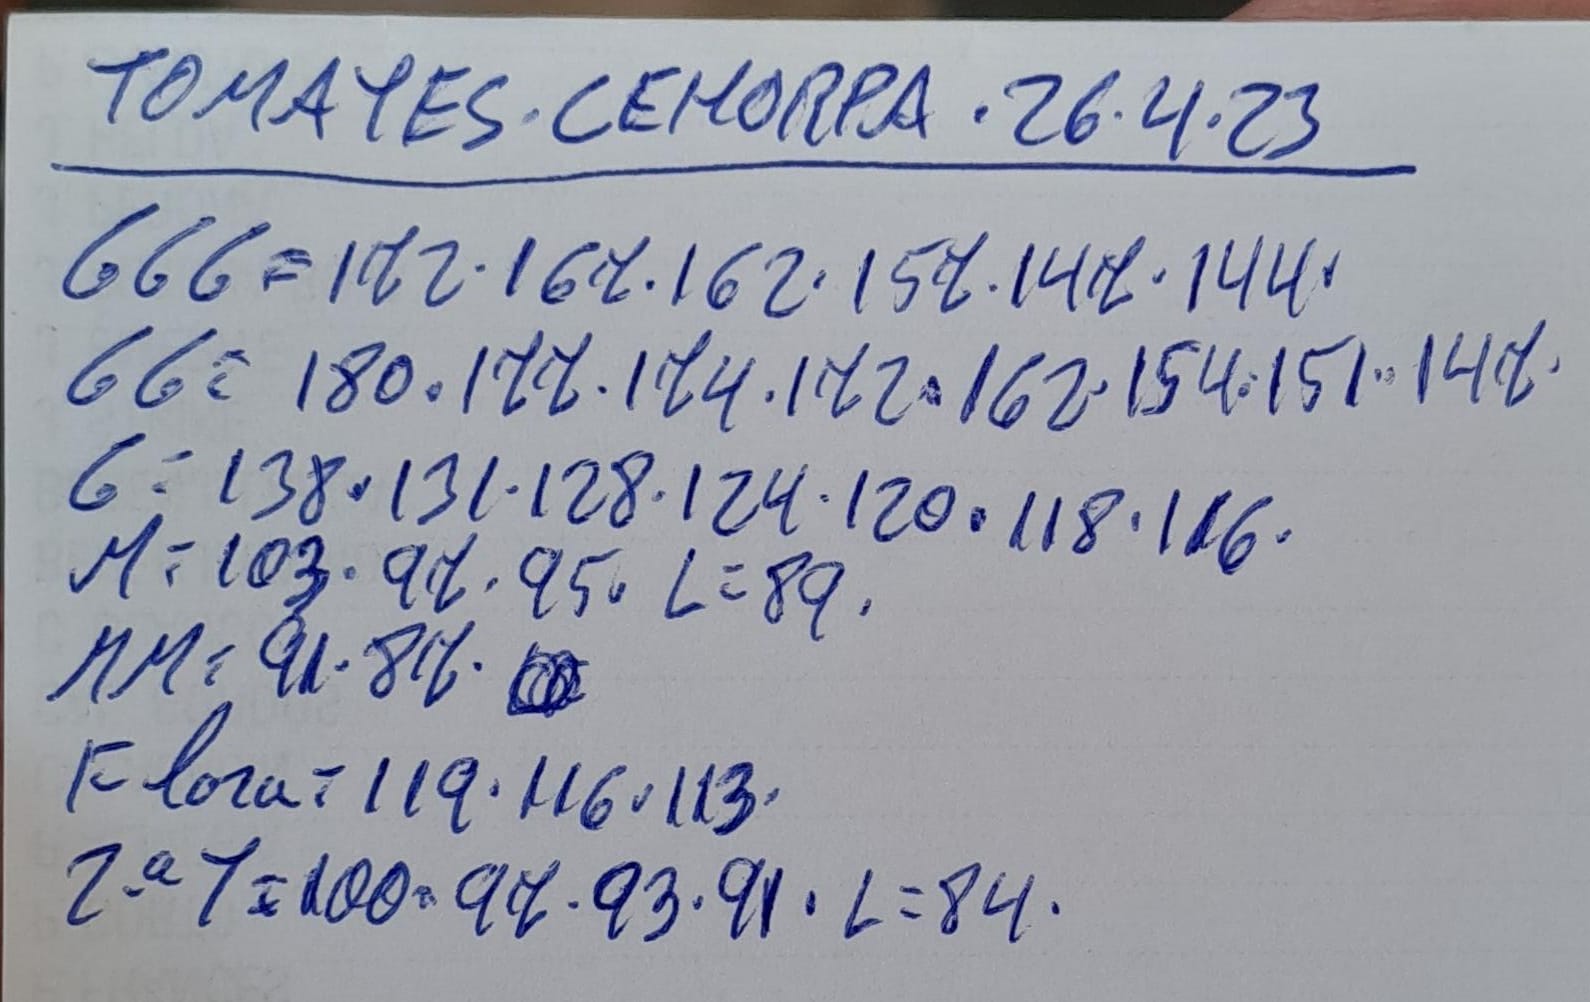 TOMATES.CEHORPA.26.4.23
GGG=172.167.162.157.147.144.
GG=180.177.174.172.162.154.151.147.
G=138.131.128.124.120.118.116.
M=103.97.95. L=89.
MM=91.87.
Flora=119.116.113.
2.ª T=100.97.93.91. L=84.